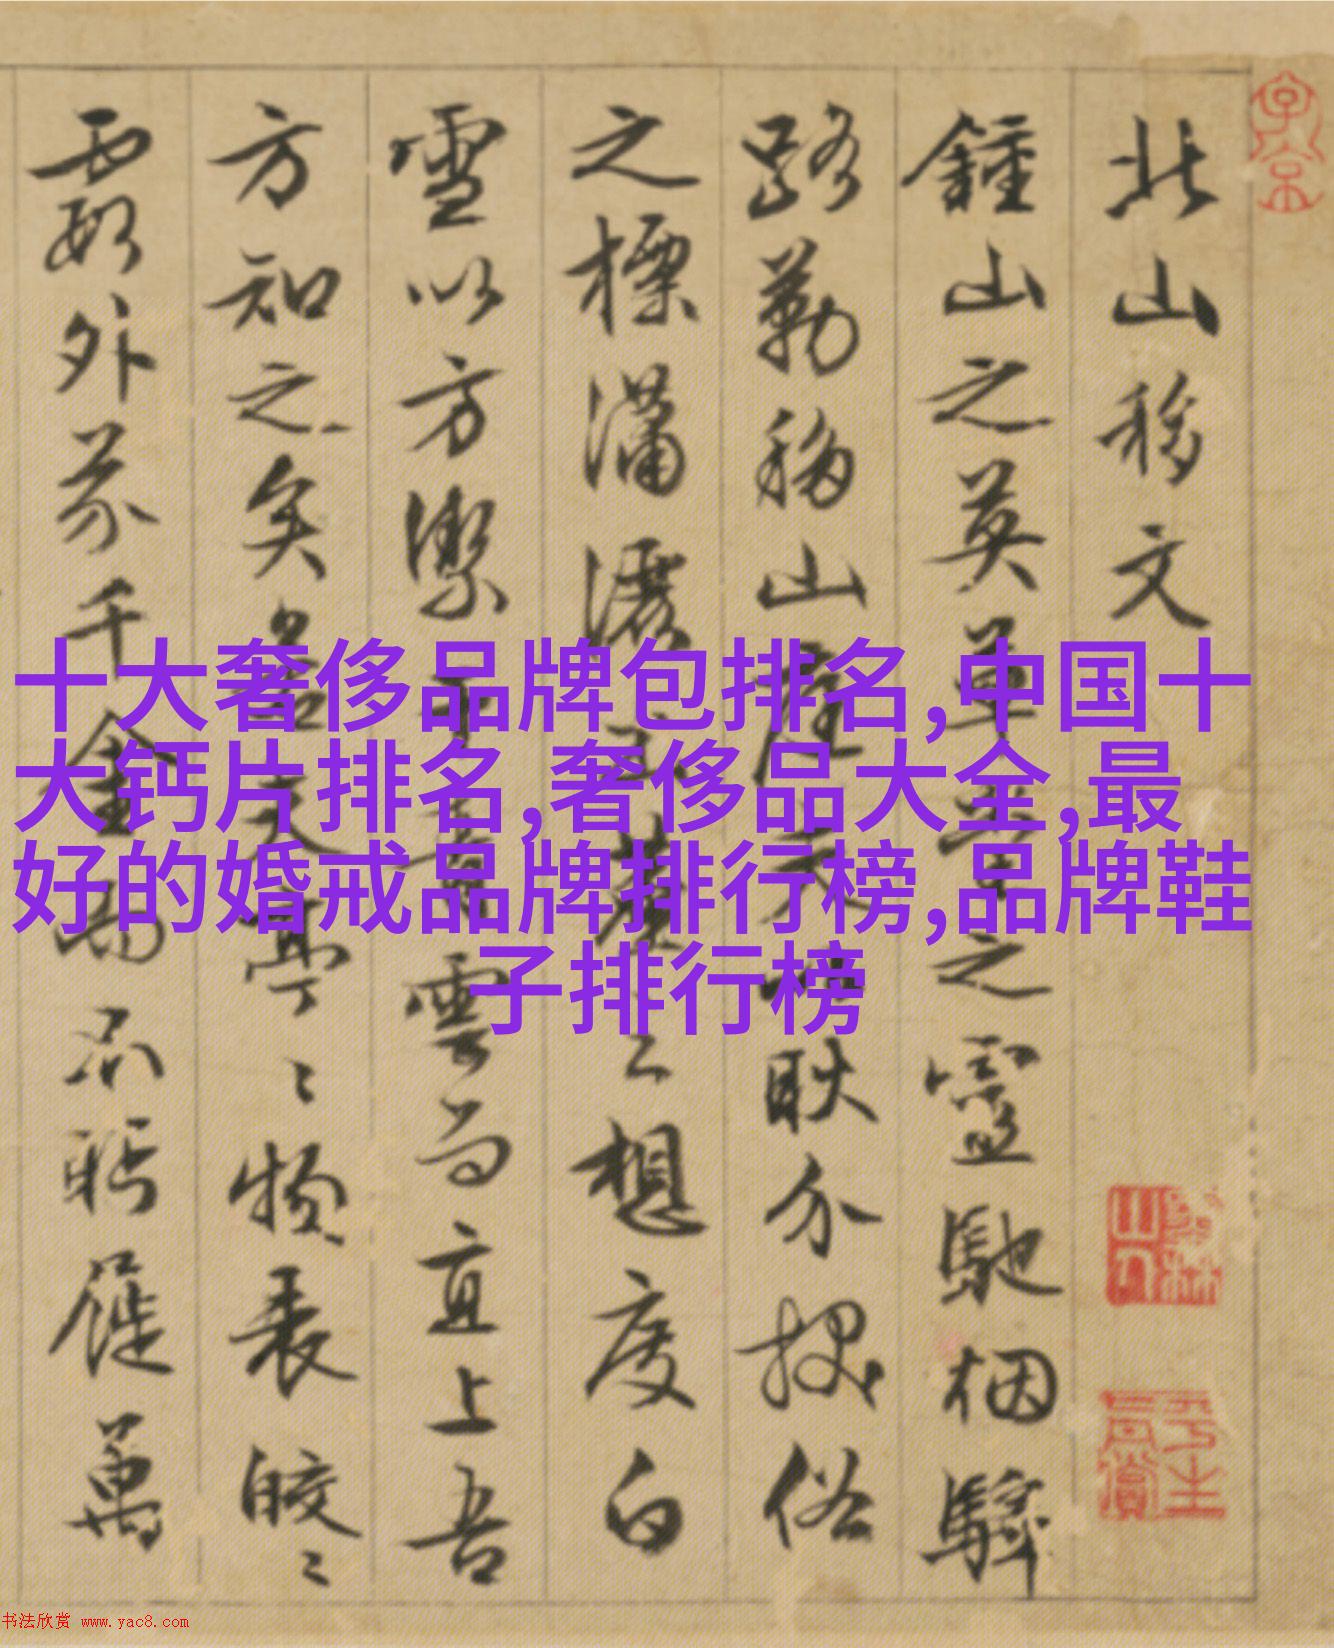 北山移文
鍾山之英草堂之靈馳烟驛
路勒移山庭夫以耿介拔俗
之標瀟灑出塵之想度白
雪以方潔干青雲而直上吾
方知之矣若其亭亭物表皎皎
霞外芥千金而不眄屣萬
十大奢侈品牌包排名,中国十
大钙片排名,奢侈品大全,最
好的婚戒品牌排行榜,品牌鞋
子排行榜
书法欣赏 www.yac8.com